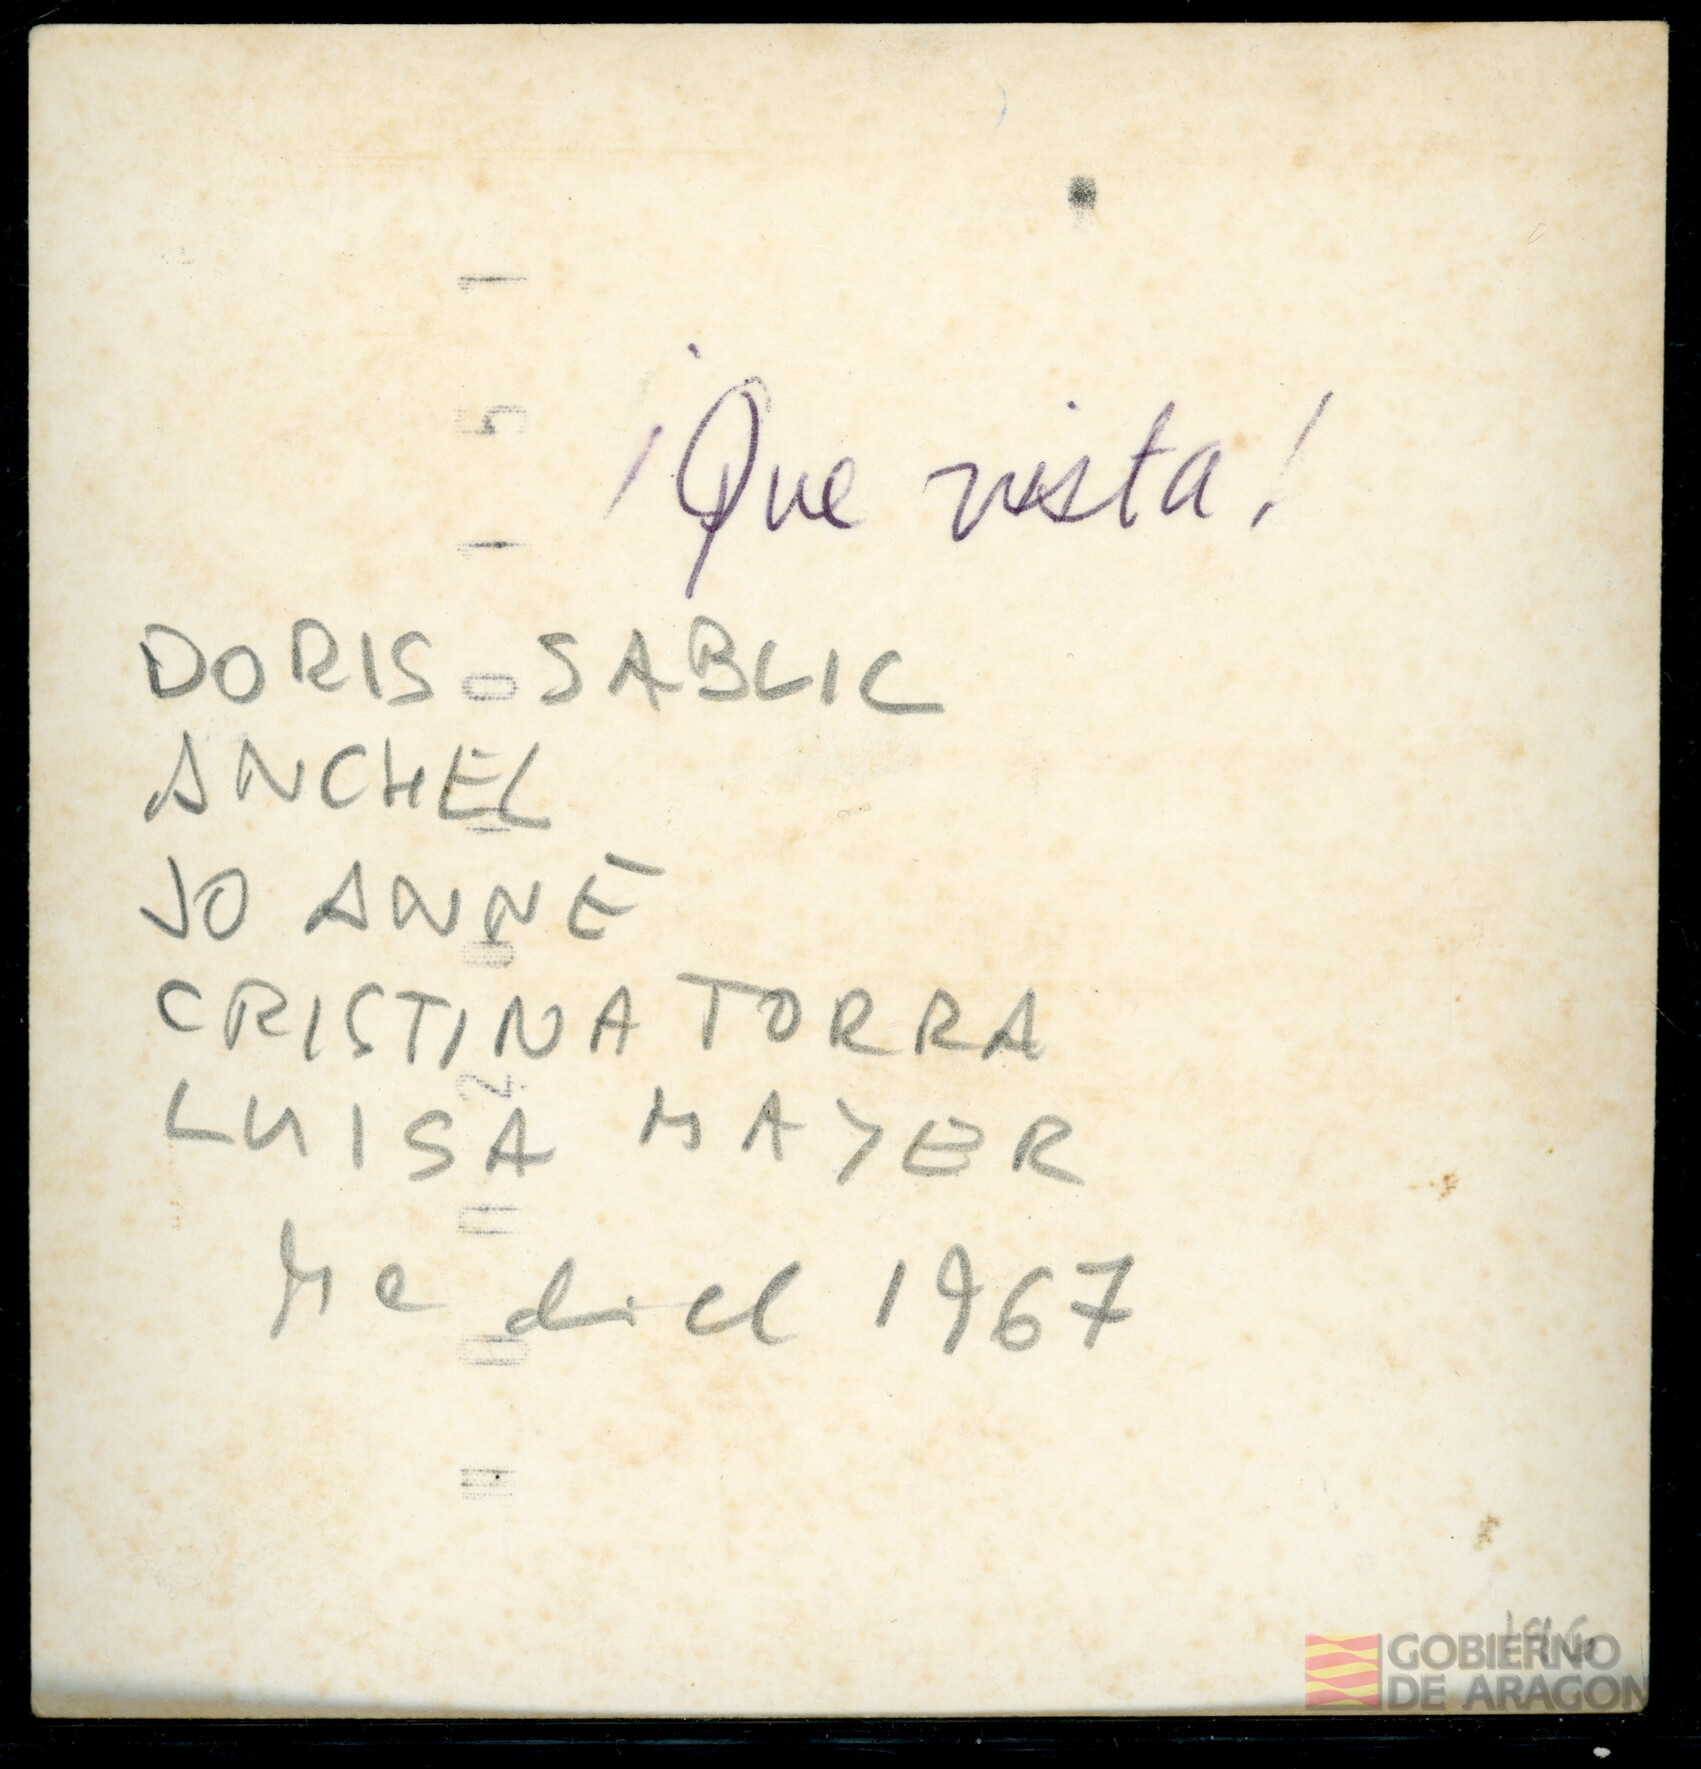 ¡Que vista!
DORIS SABLIC
ANCHEL
JO ANNE
CRISTINA TORRA
LUISA MAYER
Mediel 1967
GOBIERNO
DE ARAGON